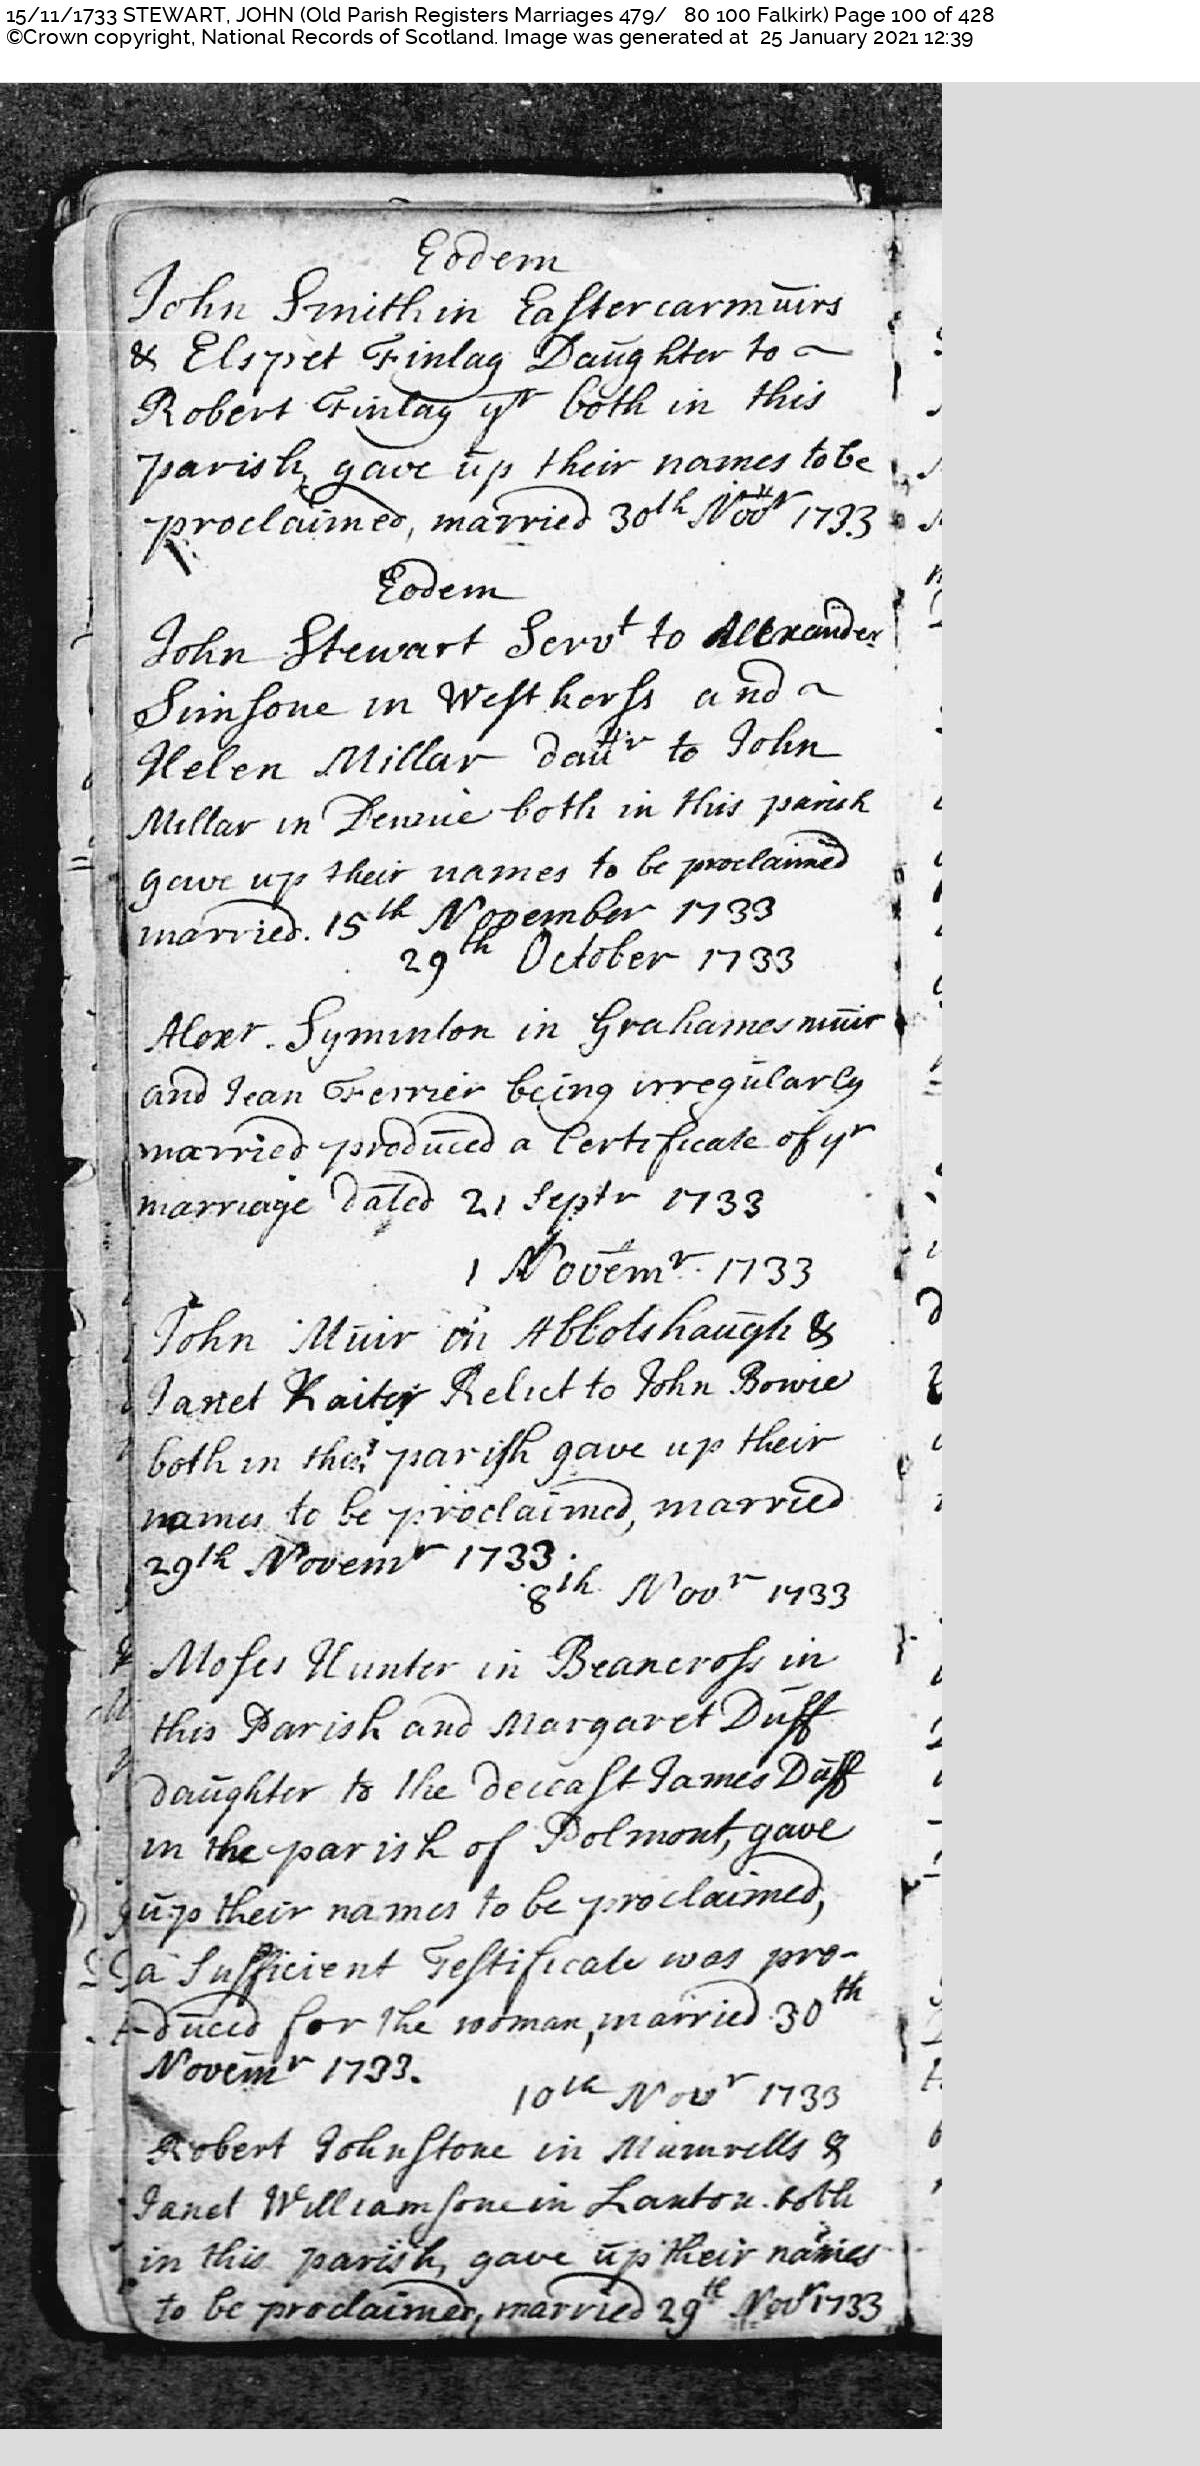 15/11/1733 STEWART, JOHN (Old Parish Registers Marriages 479/ 80 100 Falkirk) Page 100 of 428
©Crown copyright, National Records of Scotland. Image was generated at 25 January 2021 12:39
Eodem
John Smith in Eastercarmuirs
& Elspet Finlay Daughter to ~
Robert Finlay yr both in this
parish, gave up their names to be
proclaimed, married 30th Novr 1733
Eodem
John Stewart Servt to Allexander
Simsone in West kerss and ~
Helen Millar daūtr to John
Millar in Dennie both in this parish
gave up their names to be proclaimed
married. 15th November 1733
29th October 1733
Alexr. Syminton in Grahamesmuir
and Jean Ferrier being irregularly
married produced a Certificate of yr
marriage dated 21 Septr 1733
1 Novemr. 1733
John Muir in Abbotshaugh &
Janet Relict to John Bowie
both in this parish gave up their
names to be proclaimed, married
29th Novemr 1733.
8th Novr 1733
Moses Hunter in Beancross in
this Parish and Margaret Duff
daughter to the deceast James Duff
in the parish of Polmont, gave
up their names to be proclaimed,
a Sufficient Testificate was pro-
duced for the woman, married 30th
Novemr 1733.
10th Novr 1733
Robert Johnstone in Mumrells &
Janet Williamsone in Lanton both
in this parish, gave up their names
to be proclaimed, married 29th Novr 1733